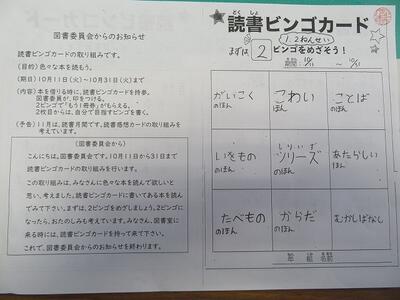 図書委員会からのお知らせ
読書ビンゴカードの取り組みです。
(目的)色々な本を読もう。
(期日)10月11日(火)～10月31日(火)まで
(内容)本を借りる時に、読書ビンゴカードを持参。
図書委員が、印をつける。
2ビンゴで「もう1冊券」がもらえる。
2枚目からは、自分で目指すビンゴを書く。
(予告)11月は、読書月間です。読書感想カードの取り組みを
考えています。
(図書委員会から)
こんにちは。図書委員会です。10月11日から31日まで
読書ビンゴカードの取り組みを行います。
この取り組みは、みなさんに色々な本を読んで欲しいと
思い、考えました。読書ビンゴカードに書いてある本を読ん
でみて下さい。まずは、2ビンゴをめざしましょう。2ビンゴに
なったら、おたのしみも考えています。みなさん、図書室に
来る時には、読書ビンゴカードを持って来て下さい。
これで、図書委員会からのお知らせを終わります。
どくしょ
読書ビンゴカード
1.2ねんせい
まずは2ビンゴをめざそう!
期間:10/11 ～ 10/31
がいこくのほん
こわいのほん
ことばのほん
いきもののほん
シリーズのほん
しりいず
あたらしいのほん
たべもののほん
からだのほん
むかしばなし
年 組 名前